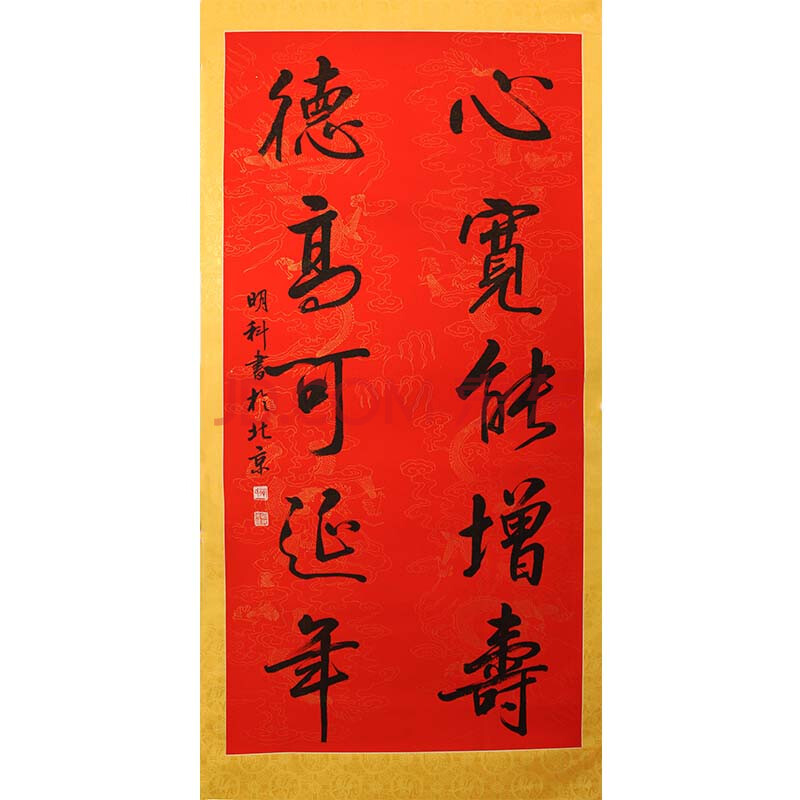 心寬能增壽
德高可延年
明科書於北京
JD.COM